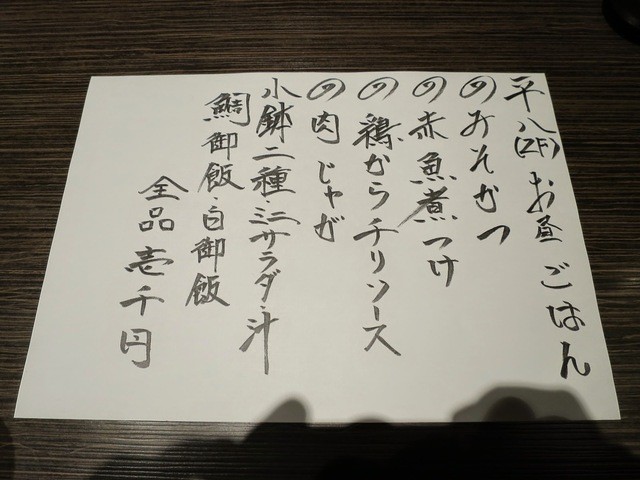 平八(2F)お昼ごはん
の みそかつ
の 赤魚煮つけ
の 鶏からチリソース
の 肉じゃが
小鉢二種・ミニサラダ・汁
鯛御飯・白御飯
全品壱千円